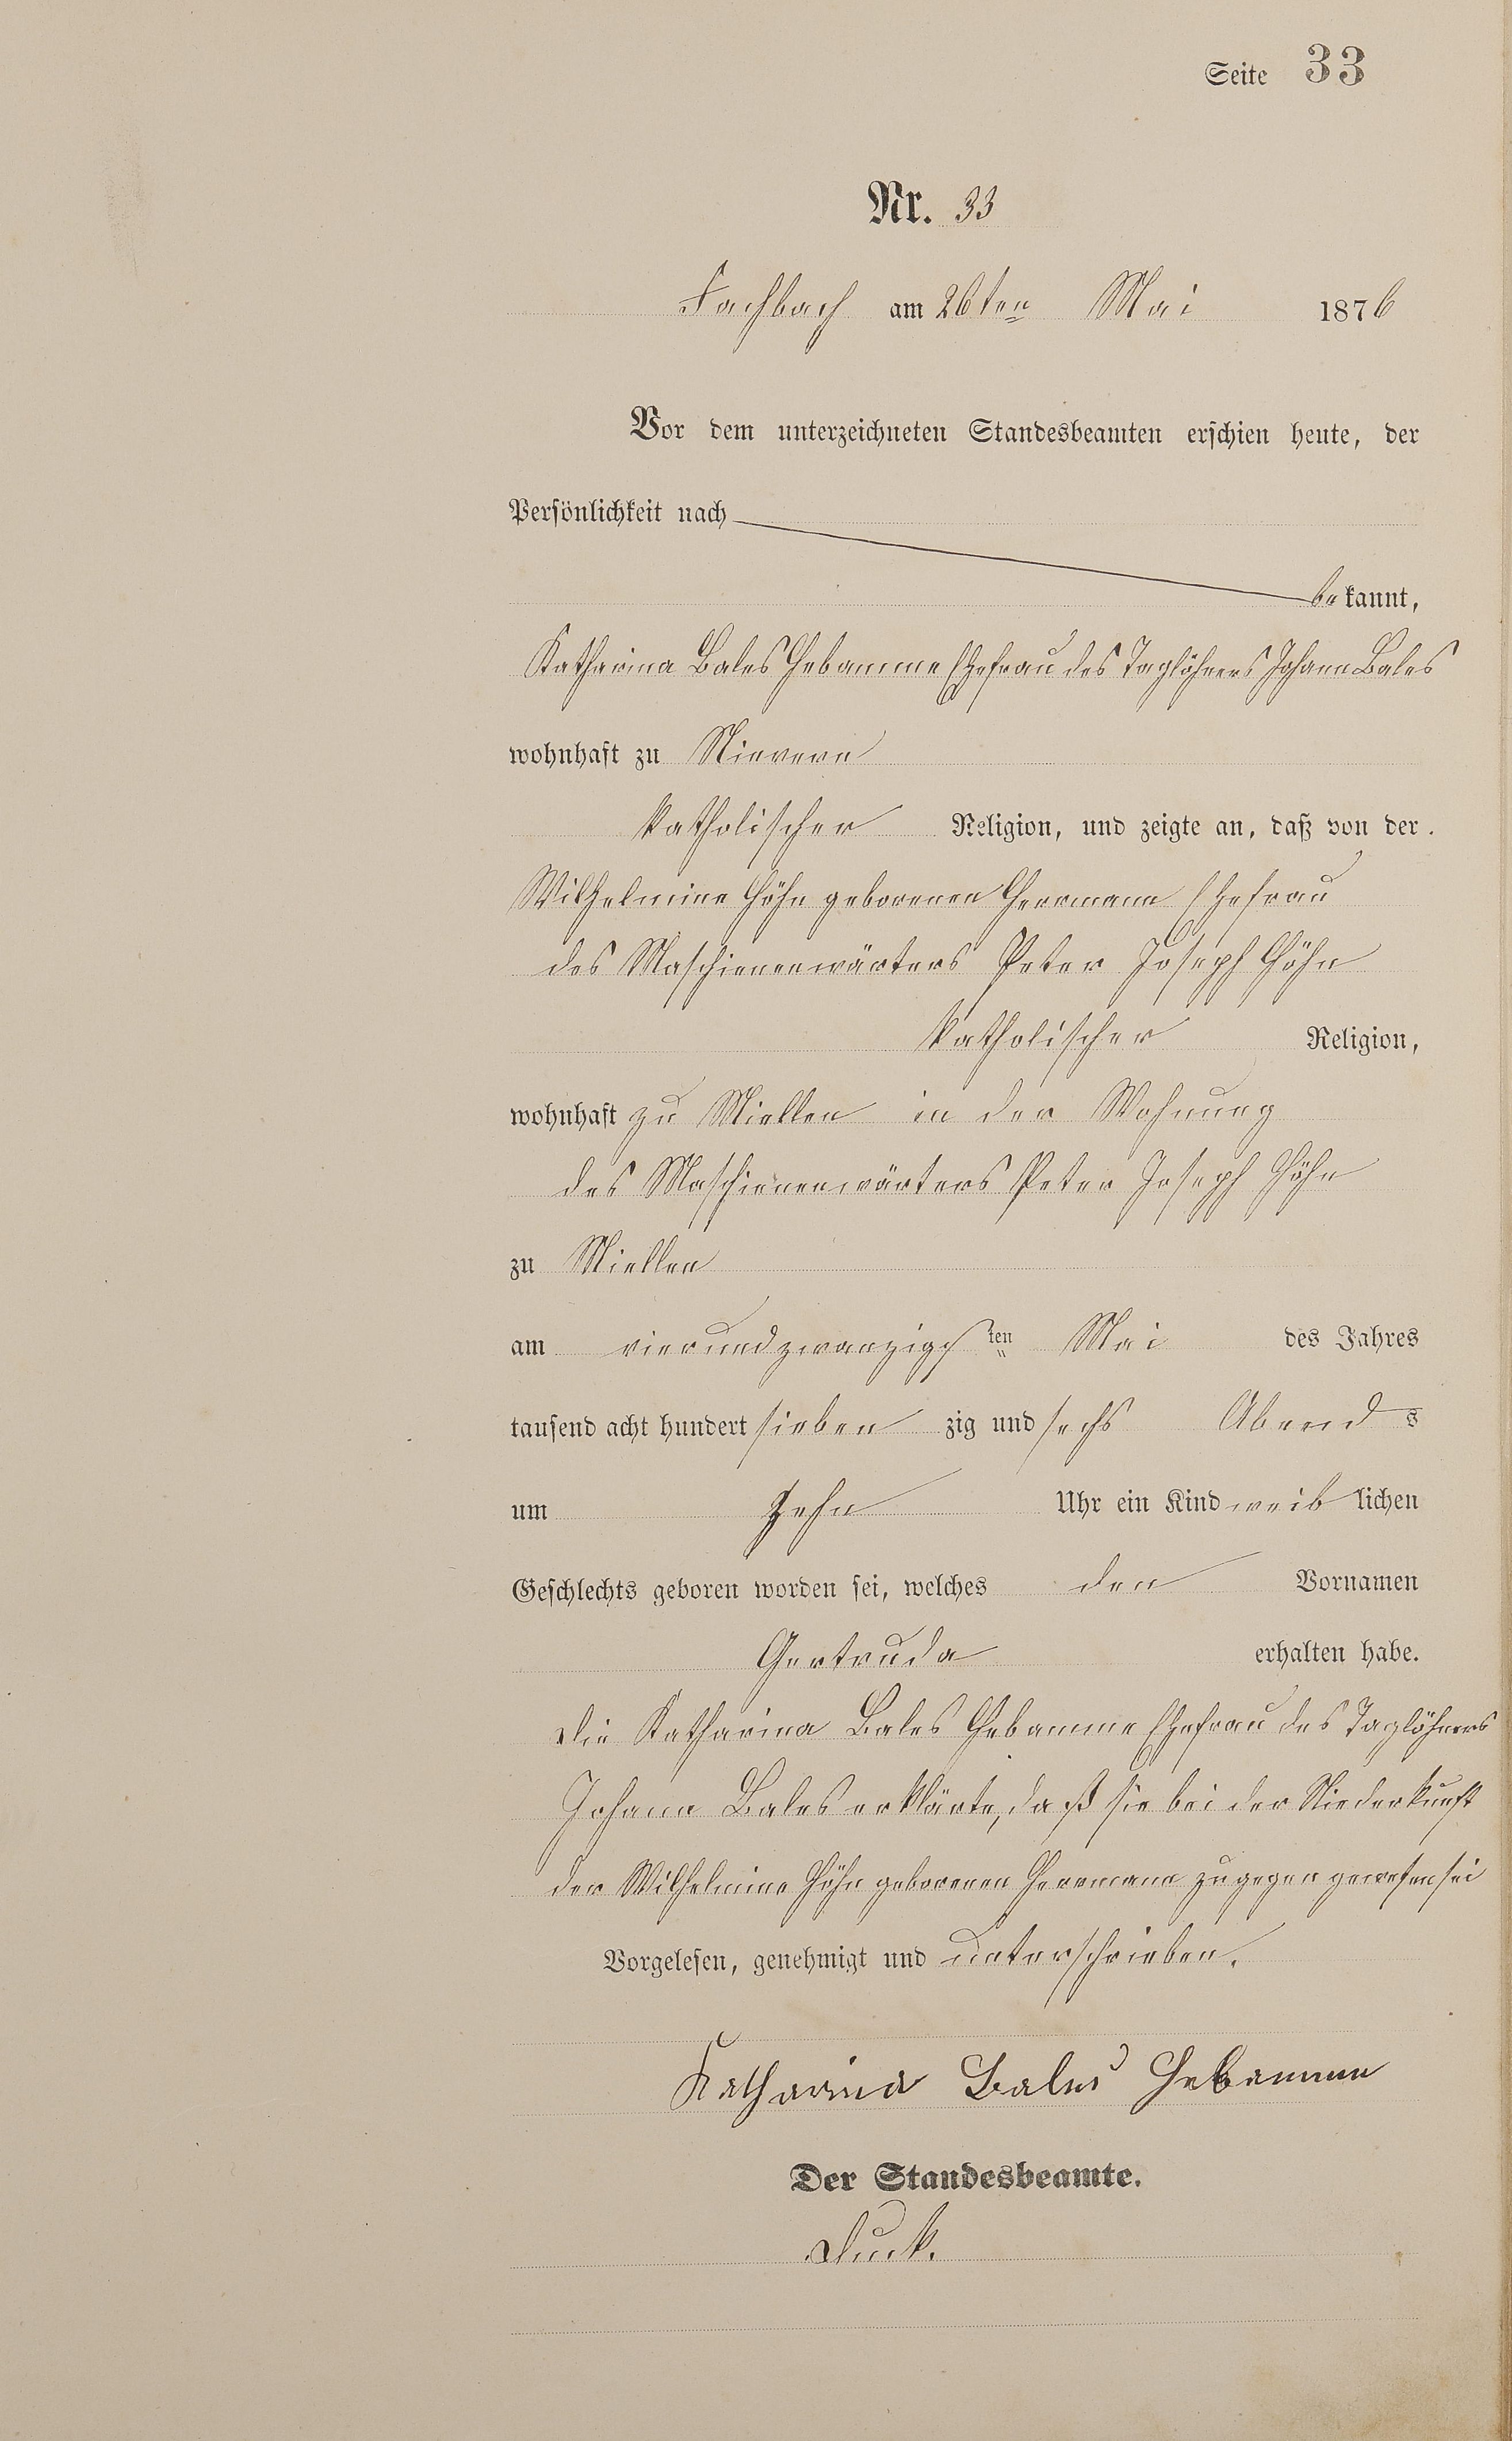 Seite 33
Nr. 33
Fachbach am 26ten Mai 1876
Vor dem unterzeichneten Standesbeamten erschien heute, der
Persönlichkeit nach
bekannt,
Katharina Bales Hebamme Ehefrau des Taglöhners Johann Bales
wohnhaft zu Nievern
katholischer Religion, und zeigte an, daß von der
Wilhelmine Höhn geborenen Herrmann Ehefrau
des Maschienenwärters Peter Joseph Höhn
katholischer Religion,
wohnhaft zu Miellen in der Wohnung
des Maschienenwärters Peter Joseph Höhn
zu Miellen
am vierundzwanzigsten Mai des Jahres
tausend acht hundert siebenzig und sechs Abends
um zehn Uhr ein Kind weiblichen
Geschlechts geboren worden sei, welches den Vornamen
Gertruda erhalten habe.
Die Katharina Bales Hebamme Ehefrau des Taglöhners
Johann Bales erklärte, daß sie bei der Niederkunft
der Wilhelmine Höhn geborenen Herrmann zugegen gewesen sei
Vorgelesen, genehmigt und unterschrieben.
Katharina Bales Hebamme
Der Standesbeamte.
Duck.